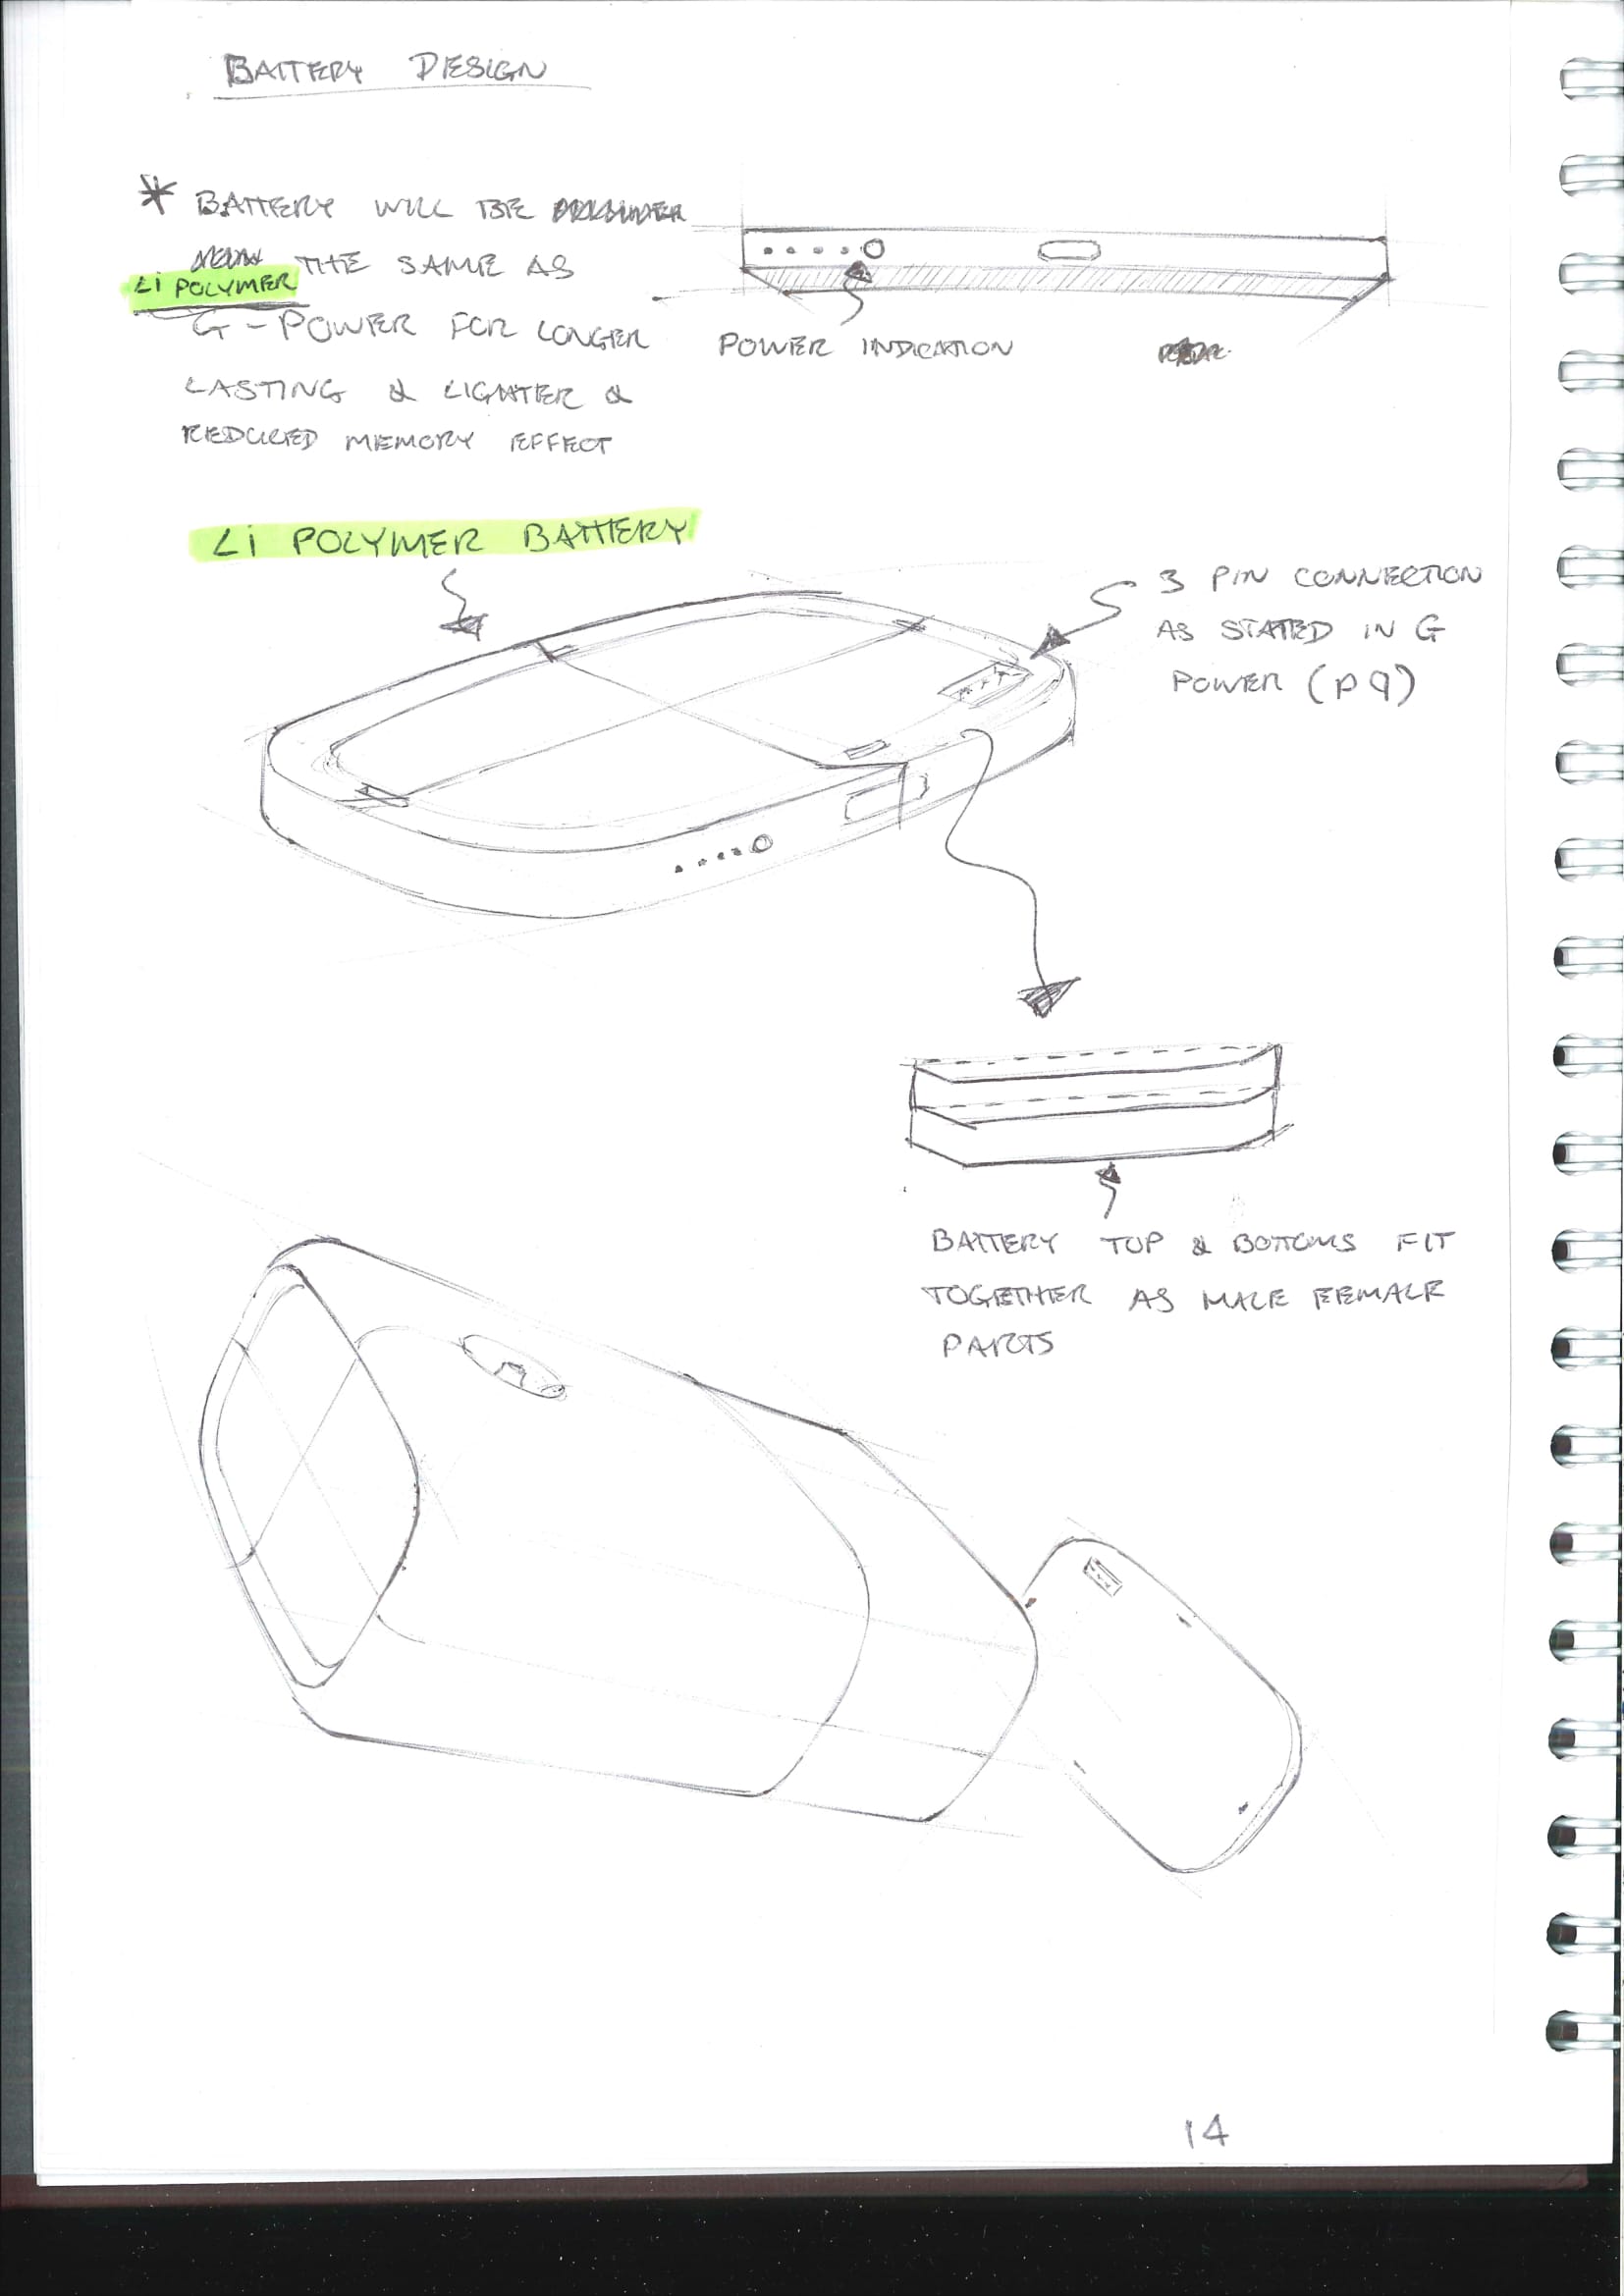 BATTERY DESIGN
* BATTERY WILL BE
THE SAME AS
Li POLYMER
G-POWER FOR LONGER
LASTING & LIGHTER &
REDUCED MEMORY EFFECT
POWER INDICATION
Li POLYMER BATTERY
3 PIN CONNECTION
AS STATED IN G
POWER (P9)
BATTERY TOP & BOTTOMS FIT
TOGETHER AS MALE FEMALE
PARTS
14